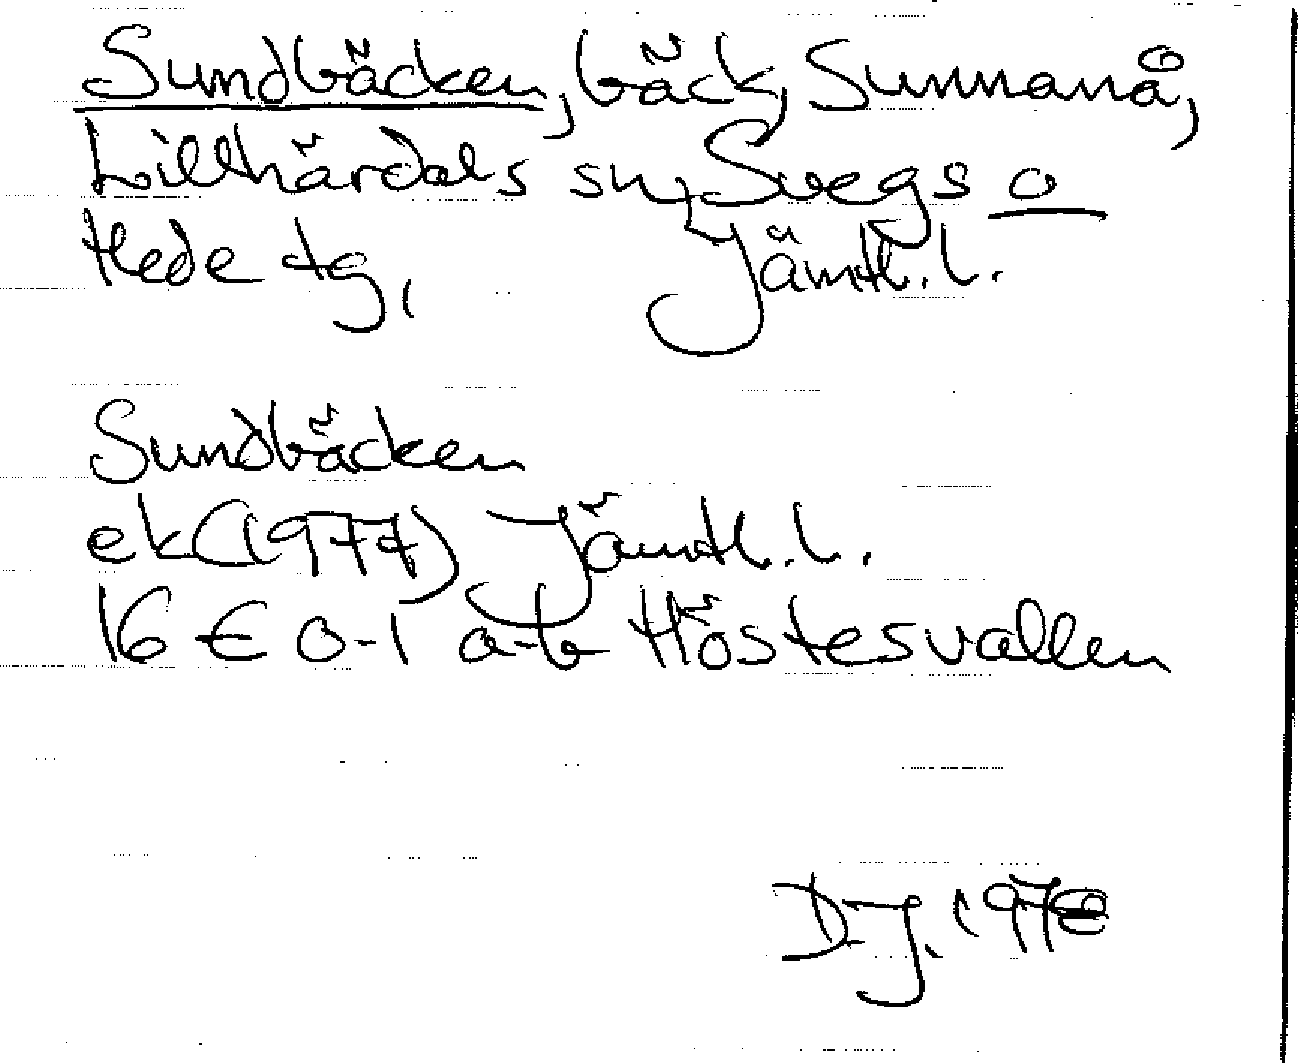 Sundbäcken, bäck, Sunnanå,
Lillhärdals sn, Svegs o
Hede tg, Jämtl. l.
Sundbäcken
ek (1977) Jämtl. l.
16 E 0-1 a-b Höstesvallen
D.J.